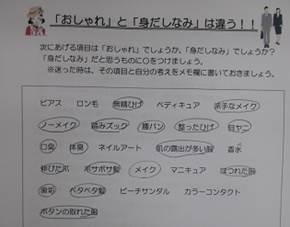 「おしゃれ」と「身だしなみ」は違う！！
次にあげる項目は「おしゃれ」でしょうか、「身だしなみ」でしょうか？
「身だしなみ」だと思うものに○をつけましょう。
※迷った時は、その項目と自分の考えをメモ欄に書いておきましょう。
ピアス ロン毛 無精ひげ ペディキュア 派手なメイク
ノーメイク 踏みズック 腰パン 整ったひげ 目ヤニ
口臭 体臭 ネイルアート 肌の露出が多い服 香水
伸びた爪 ボサボサ髪 メイク マニキュア ほつれた服
ベタベタ髪 ビーチサンダル カラーコンタクト
ボタンの取れた服